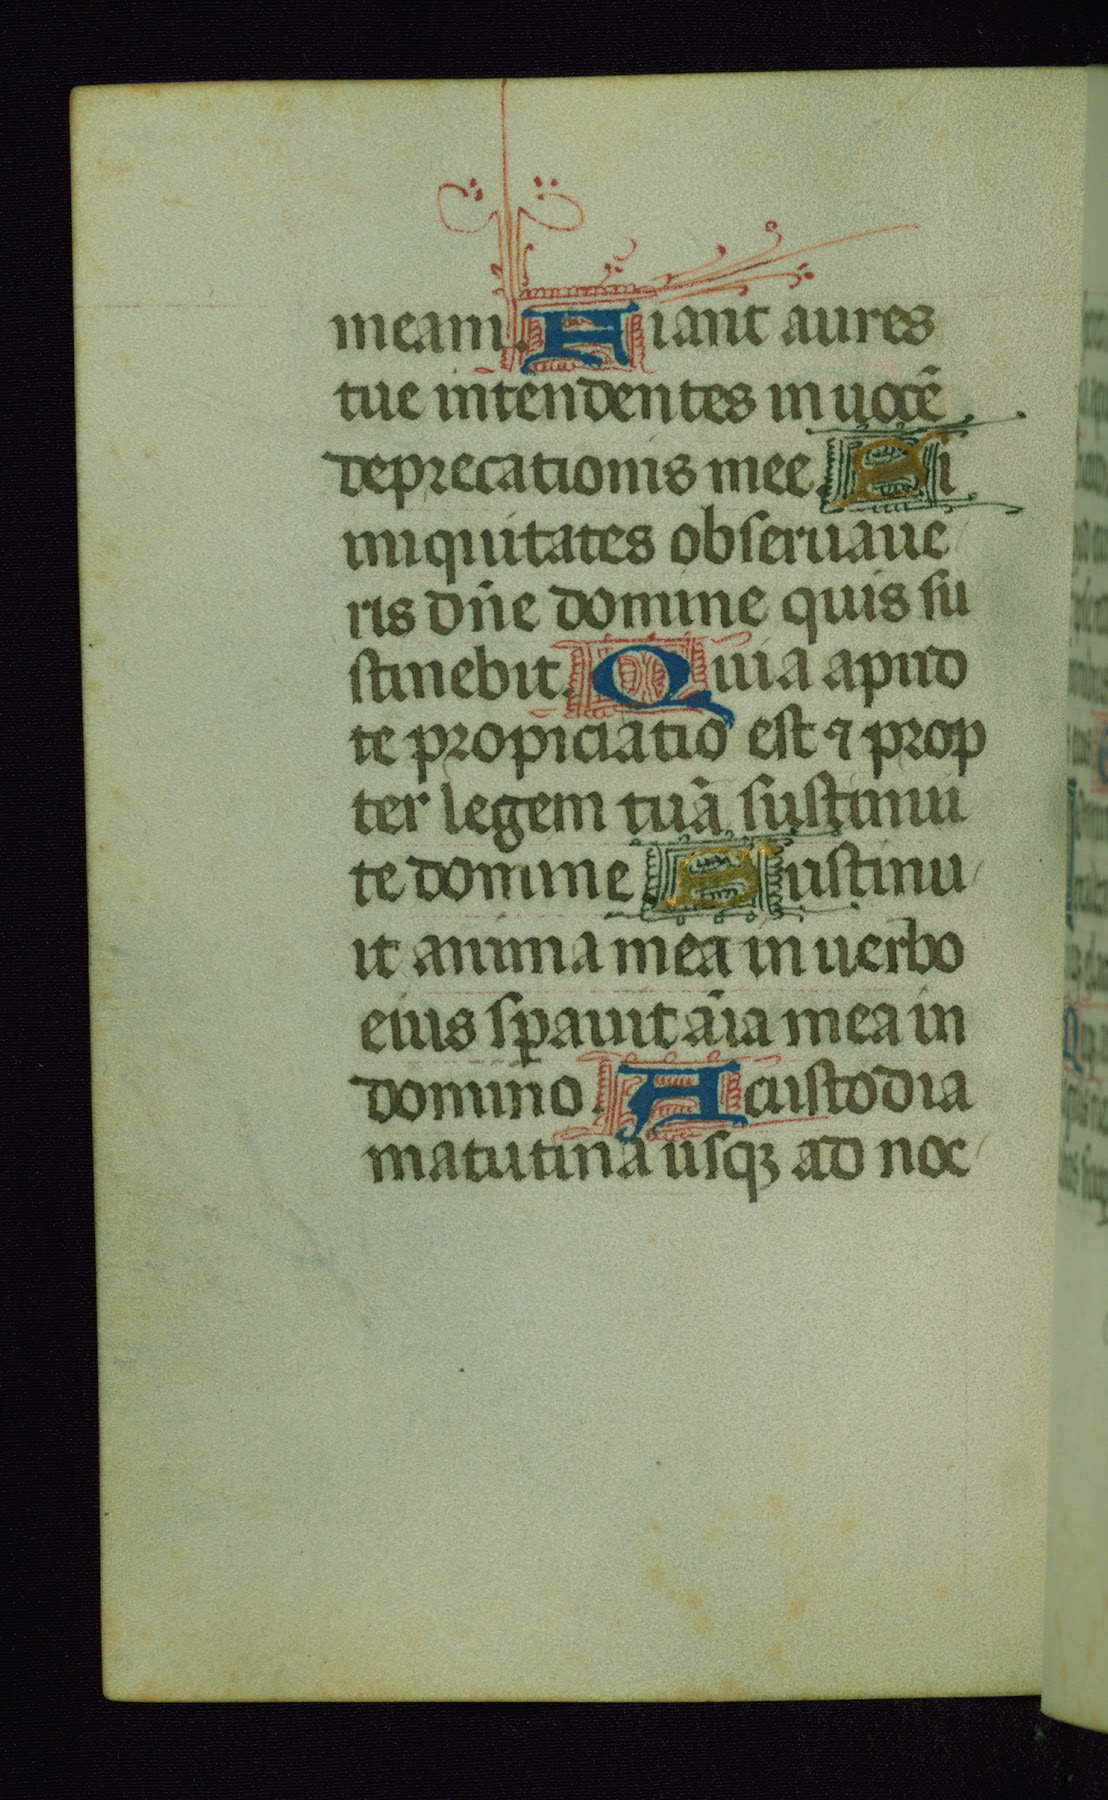 meam. Fiant aures
tue intendentes in uocē
deprecationis mee. Si
iniquitates obseruaue
ris dn̄e domine quis su
stinebit. Quia apud
te propiciatio est ⁊ prop
ter legem tuā sustinui
te domine Sustinu
it anima mea in uerbo
eius sꝑauit aīa mea in
domino. A custodia
matutina usqꝫ ad noc